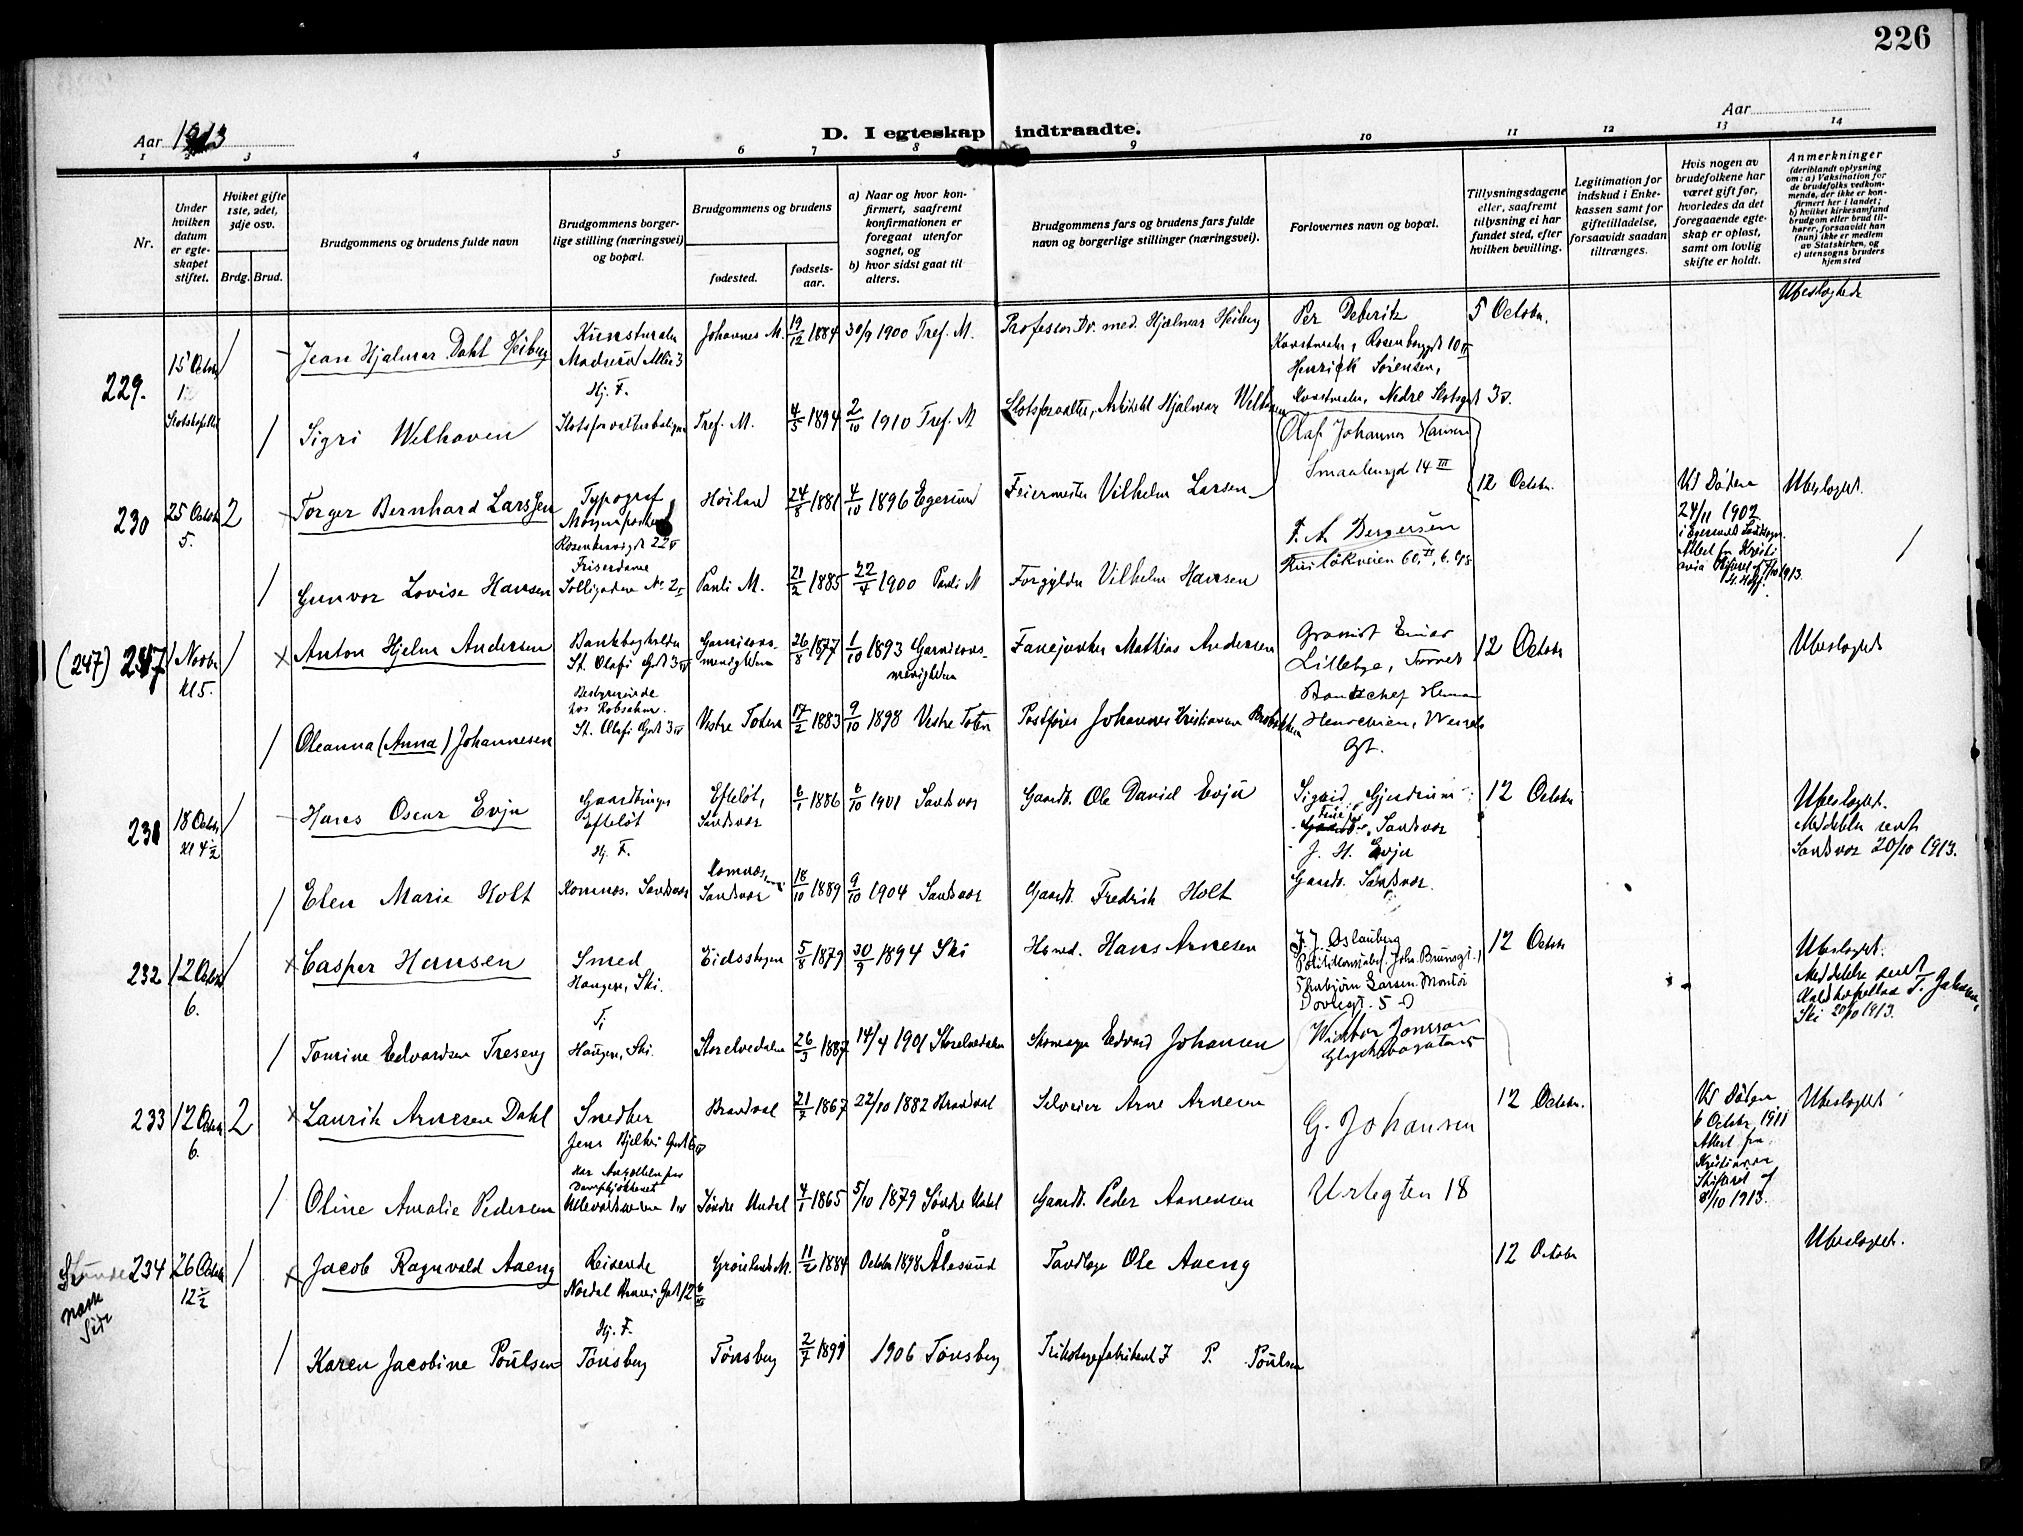 226
Aar 1913
D. I egteskap indtraadte.
Aar
1 2 3 4 5 6 7 8 9 10 11 12 13 14
Nr.
Under hvilken datum er egteskapet stiftet.
Hviket gifte 1ste, 2det, 3dje osv.
Brdg. Brud.
Brudgommens og brudens fulde navn
Brudgommens borgerlige stilling (næringsvei) og bopæl.
Brudgommens og brudens
fødested.
fødselsaar.
a) Naar og hvor konfirmert, saafremt konfirmationen er foregaat utenfor sognet, og
b) hvor sidst gaat til alters.
Brudgommens fars og brudens fars fulde navn og borgerlige stillinger (næringsvei).
Forlovernes navn og bopæl.
Tillysningsdagene eller, saafremt tillysning ei har fundet sted, efter hvilken bevilling.
Legitimation for indskud i Enkekassen samt for giftetilladelse, forsaavidt saadan tiltrænges.
Hvis nogen av brudefolkene har været gift før, hvorledes da det foregaaende egteskap er opløst, samt om lovlig skifte er holdt.
Anmerkninger
(deriblandt oplysning om: a) Vaksination for de brudefolks vedkommende, der ikke er konfirmert her i landet;
b) hvilket kirkesamfund brudgom eller brud tilhører, forsaavidt han (hun) ikke er medlem av Statskirken, og
c) utensogns bruders hjemsted
229. 15 Octbr 1 Slotskapellet
/ Jean Hjalmar Dahl Heiberg
Kunstmaler Madserud Allé 3 Hj. F.
Johannes M. 19/12 1884 30/9 1900 Tref. M.
Professor Dr. med. Hjalmar Heiberg
Per Deberitz Kunstmaler, Rosenborggt 10 II
Henrick Sørensen, Kunstmaler, Nedre Slotsgt 3 IV.
5 Octobr.
Ubeslægtede
/ Sigri Welhaven
Slotsforvalterboligen Tref. M. 4/5 1894 2/10 1910 Tref. M
Slotsforvalter, Arkitekt Hjalmar Welhaven
230 25 Octbr 5. 2
Torger Bernhard Larssen
Typograf Morgenposten Rosenkrantzgt 22 V
Høiland 24/8 1881 4/10 1896 Egersund
Feiermester Vilhelm Larsen
Olaf Johannes Hansen Smaalensgd 14 III
F. A. Bergersen
Ruseløkveien 60, II,
12 Octobr.
Ved Døden 24/11 1902 i Egersunds Landsogn. Attest fra Kristiania Skifteret af 7/10 1913.
Ubeslægtet.
/ Gunvor Lovise Hansen
Friserdame Solligaden No 2 II
Pauli M. 21/2 1885 22/4 1900 Pauli M
Forgylder Vilhelm Hansen
(247) 247 1 Novbr Kl 5. /
× Anton Hjelm Andersen
Bankbogholder St. Olafs Gt 3 IV
Garnisonsmenigheden 26/8 1877 1/10 1893 Garnisonsmenigheden
Fanejunker Mathias Andersen
Grossist Einar Lillebye,
12 Octobr
Ubeslægtet
/ Oleanna (Anna) Johannesen
Bestyrerinde hos Robsahm. St. Olafs Gt 3 IV
Vestre Toten 17/2 1883 9/10 1898 Vestre Toten
Postfører Johannes Kristiansen
231 18 Octbr Kl 4 1/2 /
Hans Oscar Evju
Gaardbruger Efteløt Hj. F.
Efteløt, Sandsvær 6/1 1886 6/10 1901 Sandsvær
Gaardb. Ole David Evju
Sigurd Gjendrum
Sandsvær
J. H. Evju Gaardb. Sandsvær.
12 Octobr
Ubeslægtet. Meddelelse sendt Sandsvær 20/10 1913.
/ Elen Marie Holt
Komnæs, Sandsvær Komnæs Sandsvær 18/10 1889 9/10 1904 Sandsvær
Gaardb. Fredrik Holt
232 12 Octobr 6. /
× Casper Hansen
Smed Haugen, Ski.
Eidsskogen 5/8 1879 30/9 1894 Ski
Husmd. Hans Arnesen
J. J. Oslauberg Politikonstabel. Joh. Brunsgt. 1
Thorbjørn Larsen Montør Dovregt. 5
12 Octobr
Ubeslægtet. Meddelelse sendt
Ski 20/10 1913.
/ Tomine Edvardsen Treseng
Haugen, Ski. Storelvedalen 26/3 1887 14/4 1901 Storelvedalen
Skomager Edvard Johansen
Wiktor Jonsson
233 12 Octobr 6. 2
× Laurik Arnesen Dahl
Snedker Jens Bjelkes Gt 6 IV
Brandval 21/2 1867 22/10 1882 Brandval
Selveier Arne Arnesen
G. Johansen
Urtegten 18
12 Octobr.
Ved Døden 6 Octobr 1911 Attest fra Kristiania Skifteret af 8/10 1913.
Ubeslægtet
/ Oline Amalie Pedersen
Dampkjøkkenet Ullevoldsveien 1 IV
Søndre Undal 4/1 1865 5/10 1879 Søndre Undal
Gaardb. Peder Aanensen
næste Side
234 26 Octobr 12 1/2 /
× Jacob Ragnvald Aaeng
Reisende Nordal Bruns Gt 12
Grønlands M. 11/2 1884 October 1898 Ålesund
Tandlæge Ole Aaeng
12 Octobr
Ubeslægtet.
/ Karen Jacobine Poulsen
Hj. F. Tønsberg Tønsberg 2/7 1891 1906 Tønsberg
Trikotagefabrikant J P. Poulsen